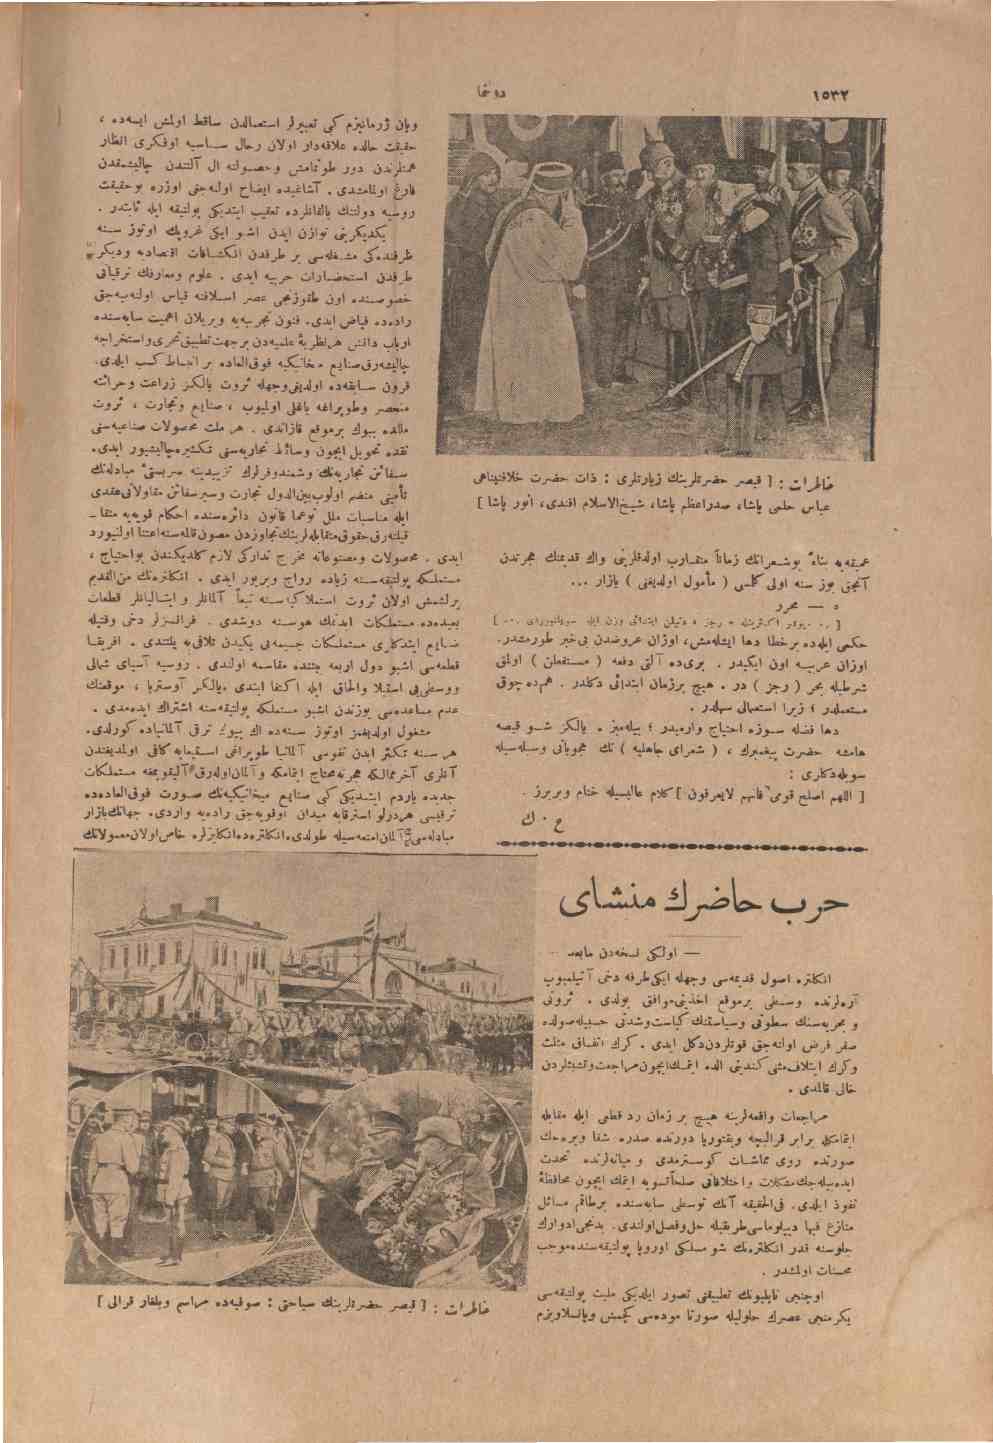 ١٥٣٢
دونما
خاطرات : [ قيصر حضرتلرينك زيارتلرى : ذات حضرت خلافتپناهى
عباس حلمى پاشا، صدراعظم پاشا، شيخ‌الاسلام افندى، انور پاشا ]
عميقه‌يه بناءً بوشعرانك زماناً متقارب اولدقلرينى واك قديمنك هجرتدن
آنجق يوز سنه اولى كلمسى ( مأمول اولديغنى ) يازار ...
٥ — محرر
حكمى ايله‌ده برخطا دها ايشله‌مش، اوزان عروضدن بى‌خبر طورمشدر.
اوزان عربيه اون ايكيدر . برى‌ده آلتى دفعه ( مستفعلن ) اولمق
شرطيله بحر ( رجز ) در . هيچ برزمان ابتدائى دكلدر . هم‌ده چوق
مستعملدر ؛ زيرا استعمالى سهلدر .
دها فضله سوزه احتياج وارميدر ؛ بيله‌ميز . يالكز شو قيصه
هامشه حضرت پيغمبرك ، ( شعراى جاهليه ) نك هجوياتى وسيله‌سيله
سويله‌دكلرى :
[ اللهم اصلح قومى فانهم لايعرفون ] كلام عاليسيله ختام ويريرز .
ع . ك
حرب حاضرك منشاى
— اولكى نسخه‌دن مابعد —
انكلتره اصول قديمه‌سى وجهله ايكى طرفه دخى آتيلميوب
آره‌لرنده وسطى برموقع اخذينى موافق بولدى . ثروتى
و بحريه‌سنك سطوتى وسياستنك كياست وشدتى حسبيله صولده
صفر فرض اولنه‌جق قوتلردن دكل ايدى . كرك اتفاق مثلث
وكرك ايتلاف مثنى كندينى الده ايتمك ايچون مراجعت وتشبثلردن
خالى قالمدى .
مراجعات واقعه‌لرينه هيچ بر زمان رد قطعى ايله مقابله
ايتمامكله برابر قراليچه ويقتوريا دورنده صدره شفا ويره‌جك
صورتده روى مماشات كوسترمدى و ميانه‌لرنده تحدث
ايده‌بيله‌جك مشكلات واختلافاتى صلحاً تسويه ايتمك ايچون محافظۀ
نفوذ ايلدى. فى‌الحقيقه آنك توسطى سايه‌سنده برطاقم مسائل
منازع فيها ديپلوماسى طريقيله حل وفصل اولندى. يدنجى ادوارك
جلوسنه قدر انكلتره‌نك شو مسلكى اوروپا پوليتيقه‌سنده موجب
محسنات اولمشدر .
اوچنجى ناپليونك تطبيقنى تصور ايلديكى مليت پوليتيقه‌سى
يكرمنجى عصرك حلوليله صورتا موده‌سى كچمش وپانسلاويزم
وپان ژرمانيزم كبى تعبيرلر استعمالدن ساقط اولمش ايسه‌ده ،
حقيقت حالده علاقه‌دار اولان رجال سياسيه اوفكرى انظار
همتلرندن دور طوتمامش وحصولنه ال آلتندن چاليشمقدن
فارغ اولمامشدى . آشاغيده ايضاح اولنه‌جغى اوزره بوحقيقت
روسيه دولتنك بالقانلرده تعقيب ايتديكى پوليتيقه ايله ثابتدر .
يكديكرينى توازن ايدن اشبو ايكى غروپك اوتوز سنه
ظرفنده‌كى مشغله‌سى بر طرفدن انكشافات اقتصاديه وديكر
طرفدن استحضارات حربيه ايدى . علوم ومعارفك ترقياتى
خصوصنده اون طقوزنجى عصر اسلافنه قياس اولنه‌ميه‌جق
راده‌ده فياض ايدى. فنون تجربيه‌يه ويريلان اهميت سايه‌سنده
ارباب دانش هر نظريۀ علميه‌دن برجهت تطبيق تحرى واستخراجه
چاليشه‌رق صنايع ميخانيكيه فوق‌العاده بر انبساط كسب ايلدى.
قرون سابقه‌ده اولديغى وجهله ثروت يالكز زراعت وحراثته
منحصر وطوپراغه باغلى اولميوب ، صنايع وتجارت ، ثروت
ملله‌ده بيوك برموقع قازاندى . هر ملت محصولات صناعيه‌سنى
نقده تحويل ايچون وسائط تجاريه‌سنى تكثيره چاليشيور ايدى.
سفائن تجاريه‌نك وشمندوفرلرك تزييدينه سربستئ مبادله‌نك
تأمينى منضم اولوب بين‌الدول تجارت وسيرسفائن مقاولاتى عقدى
ايله مناسبات ملل نوعما قانون دائره‌سنده احكام قويه‌يه متقا-
قبلنه‌رق حقوق متقابله‌لرينك تجاوزدن مصون قالمه‌سنه اعتنا اولنيورد
ايدى . محصولات ومصنوعاته مخرج تداركى لازم كلديكندن بواحتياج ،
مستملكه پوليتيقه‌سنه زياده رواج ويريور ايدى . انكلتره‌نك من‌القديم
يرلشمش اولان ثروت استملاكيه‌سنه تبعاً آلمانلر و ايتاليانلر قطعات
بعيده‌ده مستملكات ايدنمك هوسنه دوشدى . فرانسزلر دخى وقتيله
ضايع ايتدكلرى مستملكات جسيمه‌يى يكيدن تلافى‌يه يلتندى . افريقا
قطعه‌سى اشبو دول اربعه بيننده مقاسمه اولندى . روسيه آسياى شمالى
ووسطى‌يى استيلا والحاق ايله اكتفا ايتدى . يالكز آوستريا ، موقعنك
عدم مساعده‌سى يوزندن اشبو مستملكه پوليتيقه‌سنه اشتراك ايده‌مدى .
مشغول اولديغمز اوتوز سنه‌ده اك بيوك ترقى آلمانياده كورلدى.
هر سنه تكثر ايدن نفوسى آلمانيا طوپراغى استيعابه كافى اولمديغندن
آنلرى آخر ممالكه هجرته محتاج ايتمامكه و آلمان اوله‌رق آليقويمغه مستملكات
جديده ياردم ايتديكى كبى صنايع ميخانيكيه‌نك صورت فوق‌العاده‌ده
ترقيسى هر درلو استرقابه ميدان اوقويه‌جق راده‌يه واردى. جهانك بازار
مبادله‌سى آلمان امتعه‌سيله طولدى. انكلتره‌ده انكليزلره خاص اولان معمولاتك
خاطرات : [ قيصر حضرتلرينك سياحتى : صوفيه‌ده مراسم وبلغار قرالى ]